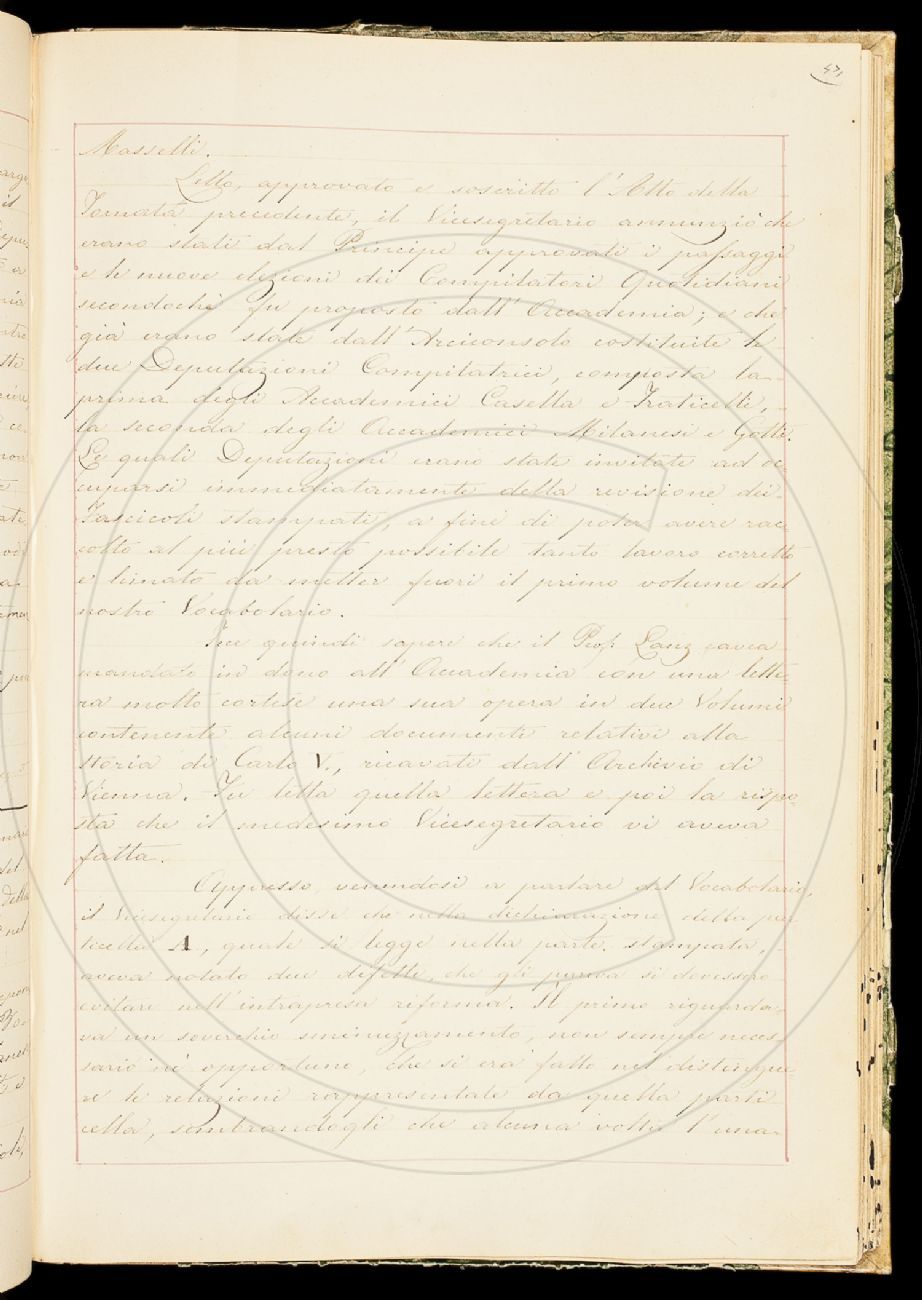 47.
Masselli.
Letto, approvato e soscritto l'Atto della
Tornata precedente, il Vicesegretario annunziò che
erano stati dal Principe approvati i passaggi
e le nuove elezioni dei Compilatori Quotidiani
secondochè fu proposto dall'Accademia; e che
già erano state dall'Arciconsolo costituite le
due Deputazioni Compilatrici, composta la
prima degli Accademici Casella e Fraticelli,
la seconda degli Accademici Milanesi e Gotti.
Le quali Deputazioni erano state invitate ad oc-
cuparsi immediatamente della revisione dei
Fascicoli stampati, a fine di poter avere rac-
colto al più presto possibile tanto lavoro corretto
e limato da metter fuori il primo volume del
nostro Vocabolario.
Fece quindi sapere che il Prof. Lanz aveva
mandato in dono all'Accademia con una lette-
ra molto cortese una sua opera in due Volumi
contenente alcuni documenti relativi alla
storia di Carlo V., ricavati dall'Archivio di
Vienna. Fu letta quella lettera e poi la rispo-
sta che il medesimo Vicesegretario vi aveva
fatta.
Appresso, venendosi a parlare del Vocabolario,
il Vicesegretario disse che nella dichiarazione della par-
ticella A, quale si legge nella parte stampata,
aveva notato due difetti, che gli pareva si dovessero
evitare nell'intrapresa riforma. Il primo riguarda-
va un soverchio sminuzzamento, non sempre neces-
sario nè opportuno, che si era fatto nel distingue-
re le relazioni rappresentate da quella parti-
cella, sembrandogli che alcuna volta l'una